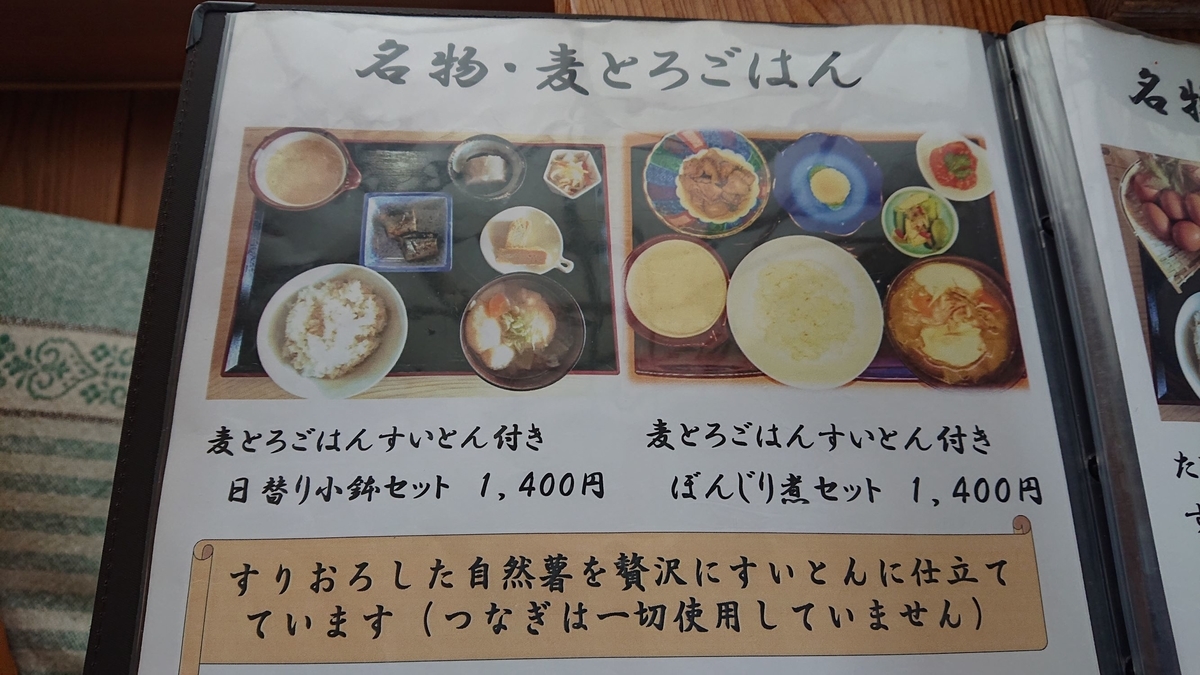 名物・麦とろごはん
麦とろごはんすいとん付き
日替り小鉢セット 1,400円
麦とろごはんすいとん付き
ぼんじり煮セット 1,400円
すりおろした自然薯を贅沢にすいとんに仕立て
ています(つなぎは一切使用していません)
名
た